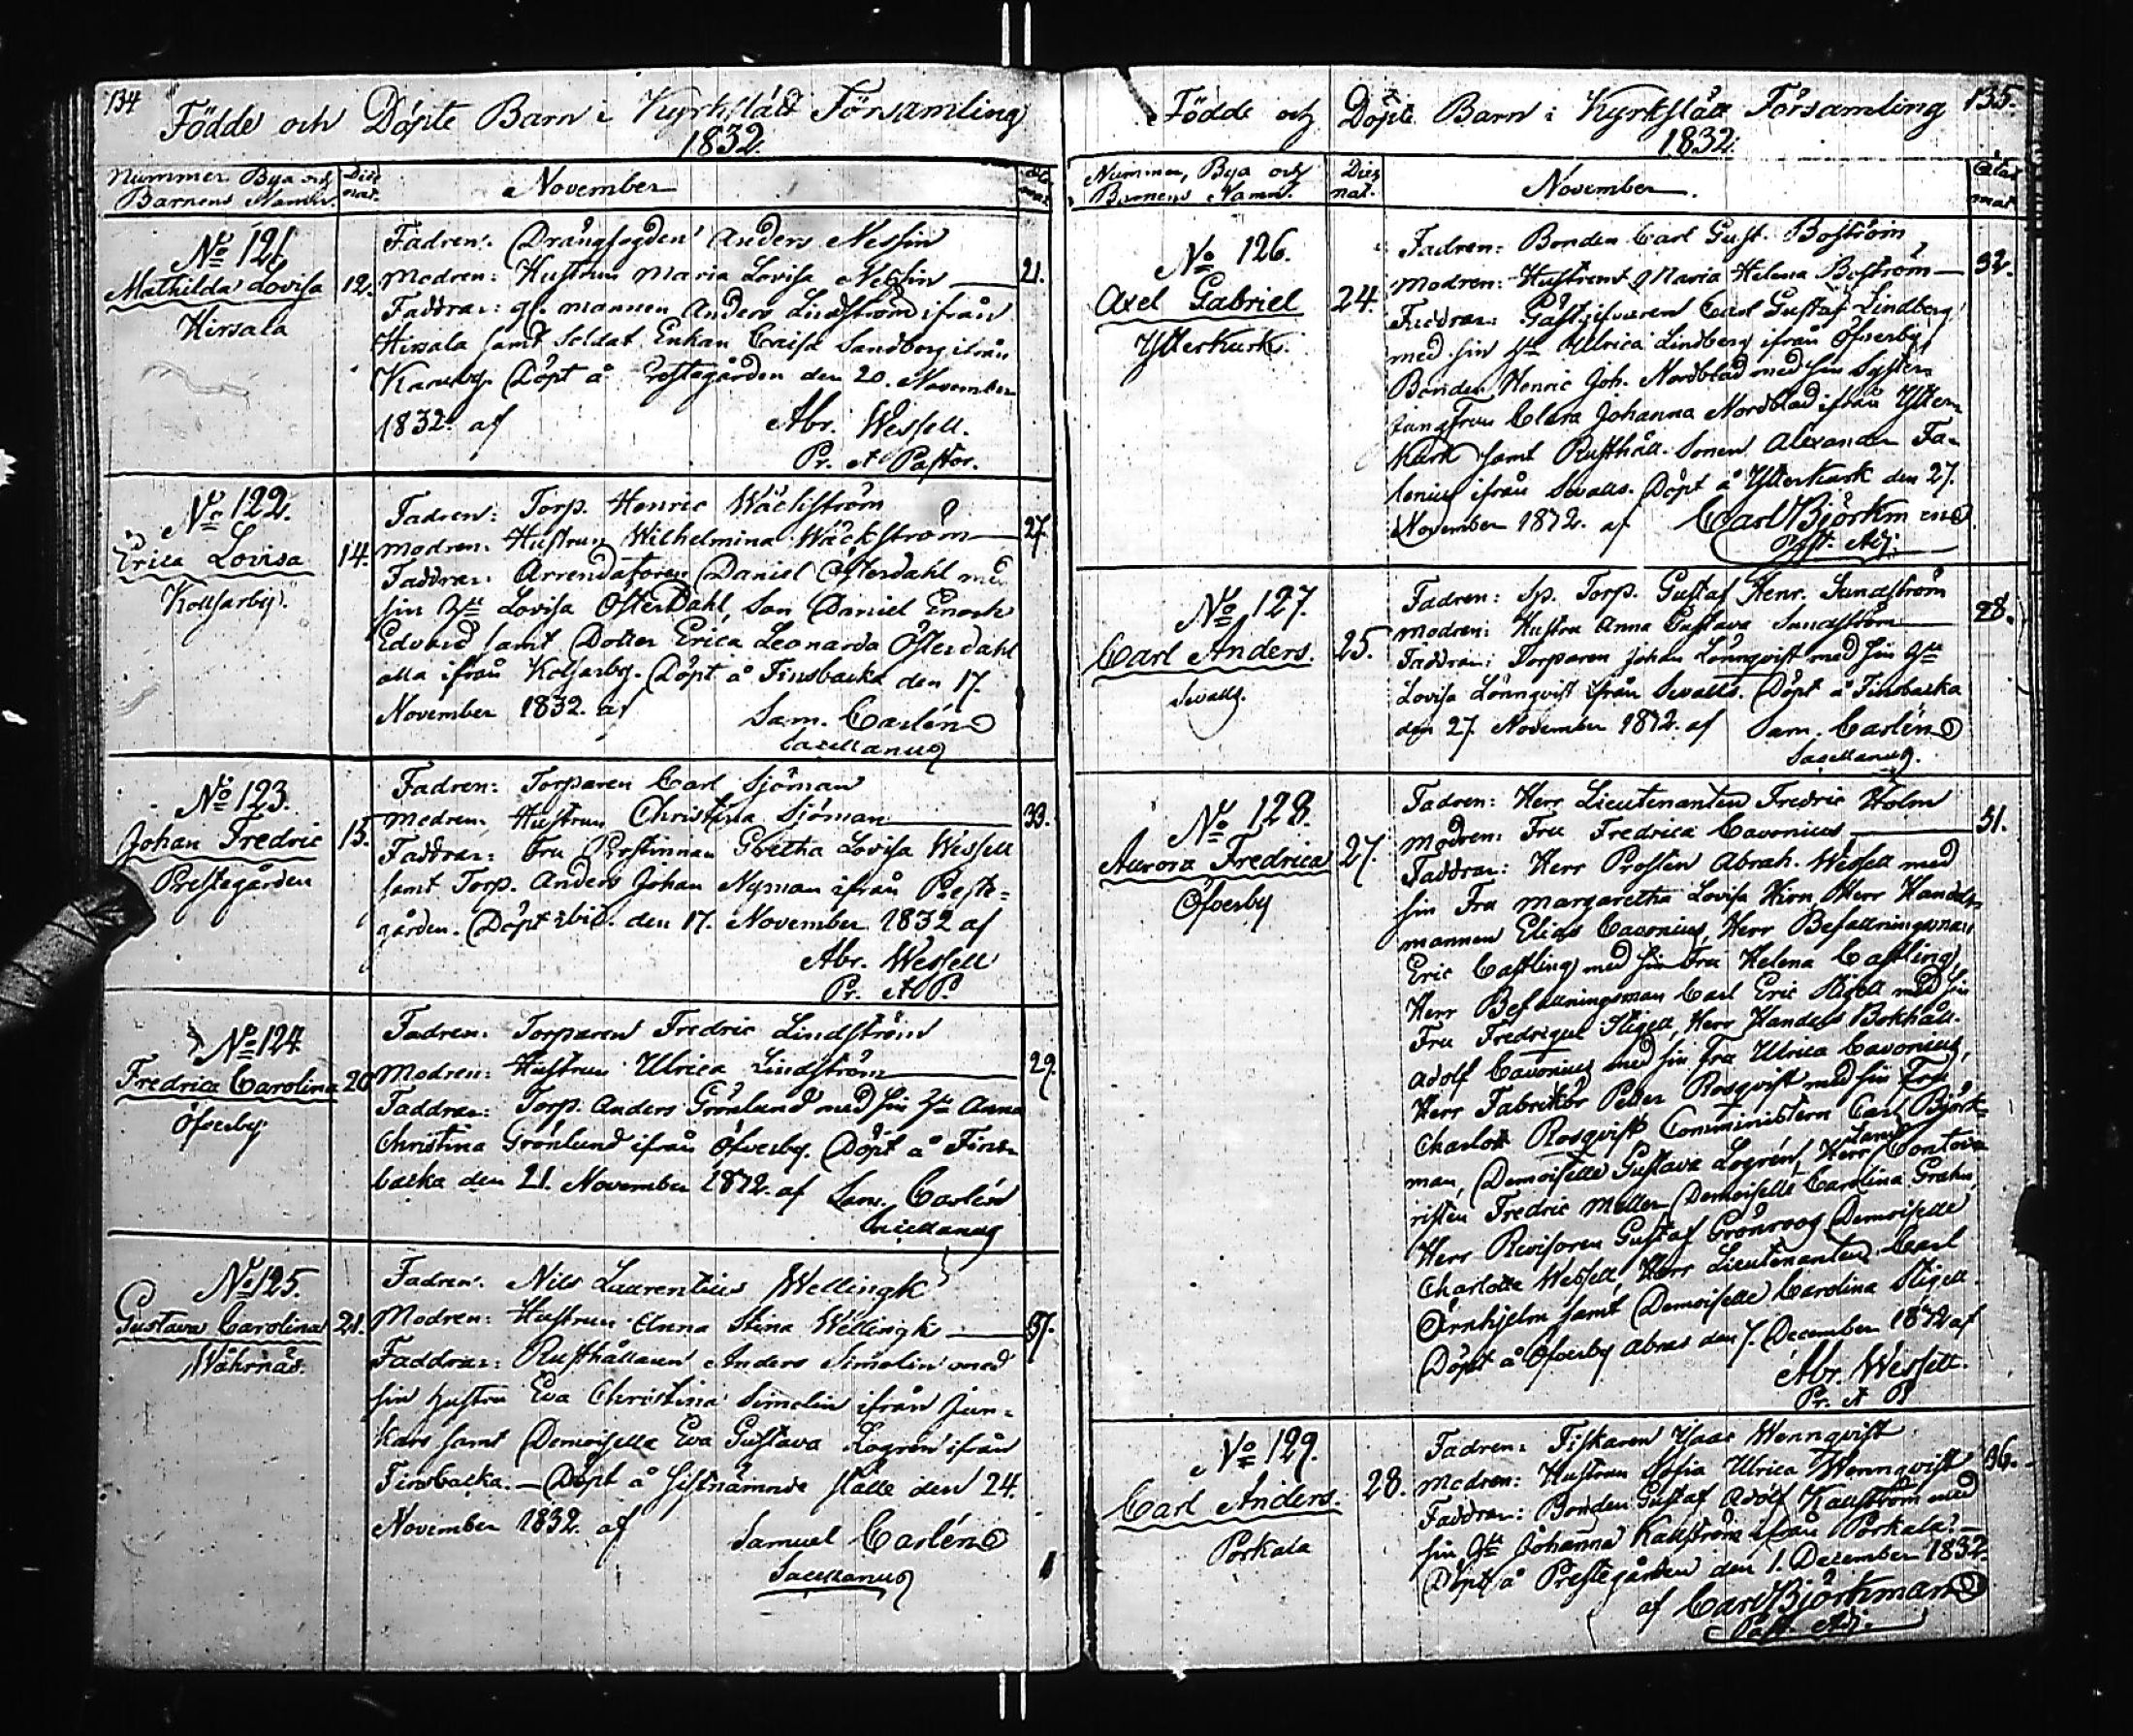 134
Födde och Döpte Barn i Kyrkslätt Församling
1832.
Nummer Bya och
Barnens Namn.
Dies
nat.
November
Ætas
mat.
No 121
Mathilda Lovisa
Hirsala
12.
Fadren: Drängfogden Anders Nessin
Modren: Hustrun Maria Lovisa Nessin
21.
Faddrar: gl. mannen Anders Lindström ifrån
Hirsala samt Soldat Enkan Caisa Sandborg ifrån
Karuby. Döpt å Prestegården den 20. November
1832. af Abr. Wessell.
Pr. et Pastor.
No 122.
Erica Lovisa
Kolsarby.
14.
Fadren: Torp. Henric Wäckström
Modren: Hustrun Wilhelmina Wäckström
27.
Faddrar: Arrendatoren Daniel Österdahl med
sin Hu Lovisa Österdahl, Son Daniel Enoch
Edvard samt Dotter Erica Leonarda Österdahl
alla ifrån Kolsarby. Döpt å Finsbacka den 17.
November 1832. af Sam. Carlén
Sacellanus
No 123.
Johan Fredric
Prestegården
15.
Fadren: Torparen Carl Sjöman
Modren: Hustrun Christina Sjöman
33.
Faddrar: Fru Prostinnan Gretha Lovisa Wessell
samt Torp. Anders Johan Nyman ifrån Preste-
gården. Döpt ibid. den 17. November 1832 af
Abr. Wessell
Pr. et P.
No 124.
Fredrica Carolina
Öfverby
20
Fadren: Torparen Fredric Lindström
Modren: Hustrun Ulrica Lindström
29.
Faddrar: Torp. Anders Grönlund med sin Hu Anna
Christina Grönlund ifrån Öfverby. Döpt å Fins-
backa den 21. November 1832. af Sam. Carlén
Sacellanus
No 125.
Gustava Carolina
Måhrnäs.
21.
Fadren: Nils Laurentius Wellingk
Modren: Hustrun Anna Stina Wellingk
37.
Faddrar: Rusthållaren Anders Simolin med
sin hustru Eva Christina Simolin ifrån Jun-
kars samt Demoiselle Eva Gustava Logrén ifrån
Finsbacka. — Döpt å sistnämnde ställe den 24.
November 1832. af Samuel Carlén
Sacellanus
135.
Födde och Döpte Barn i Kyrkslätt Församling
1832.
Nummer, Bya och
Barnens Namn.
Dies
nat.
November.
Ætas
mat.
No 126.
Axel Gabriel
Ytterkurk.
24.
Fadren: Bonden Carl Gust. Boström
Modren: Hustrun Maria Helena Boström
32.
Faddrar: Gästgifvaren Carl Gustaf Lindberg
med sin Hu Ulrica Lindberg ifrån Öfverby,
Bonden Henric Joh. Nordblad med sin Syster
Jungfrun Clara Johanna Nordblad ifrån Ytter-
kurk samt Rusthåll. Sonen Alexander Fa-
lenius ifrån Svalls. Döpt å Ytterkurk den 27.
November 1832. af Carl Björkman
Past. Adj.
No 127.
Carl Anders.
Svalls.
25.
Fadren: Sp. Torp. Gustaf Henr. Sundström
Modren: Hustru Anna Gustava Sundström
28.
Faddrar: Torparen Johan Lönnqvist med sin Hu
Lovisa Lönnqvist ifrån Svalls. Döpt å Finsbacka
den 27. November 1832. af Sam. Carlén
Sacellanus.
No 128.
Aurora Fredrica
Öfverby
27.
Fadren: Herr Lieutenanten Fredric Holm
Modren: Fru Fredrica Cavonius
31.
Faddrar: Herr Prosten Abrah. Wessell med
sin Fru Margaretha Lovisa Hirn, Herr Handels-
mannen Elias Cavonius, Herr Befallningsman
Eric Castling med sin Fru Helena Castling,
Herr Befallningsman Carl Eric Stigell med sin
Fru Fredrique Stigell, Herr Handels Bokhåll.
Adolf Cavonius med sin Fru Ulrica Cavonius,
Herr Fabrikör Petter Rosqvist med sin Fru
Charlott Rosqvist Comministern Carl Björk-
man, Demoiselle Gustava Logrén, Herr Lands Contoro-
risten Fredric Mellen, Demoiselle Carolina Grahn,
Herr Revisoren Gustaf Grönroos Demoiselle
Charlotta Wessell, Herr Lieutenanten Carl
Örnhjelm samt Demoiselle Carolina Stigell.
Döpt å Öfverby den 7. December 1832 af
Abr. Wessell.
Pr. et P
No 129.
Carl Anders.
Porkala
28.
Fadren: Fiskaren Isaac Wennqvist
Modren: Hustrun Sofia Ulrica Wennqvist
36.
Faddrar: Bonden Gustaf Adolf Kallström med
sin Hu Johanna Kallström ifrån Porkala. —
Döpt å Prestegården den 1. December 1832.
af Carl Björkman
Past. Adj.